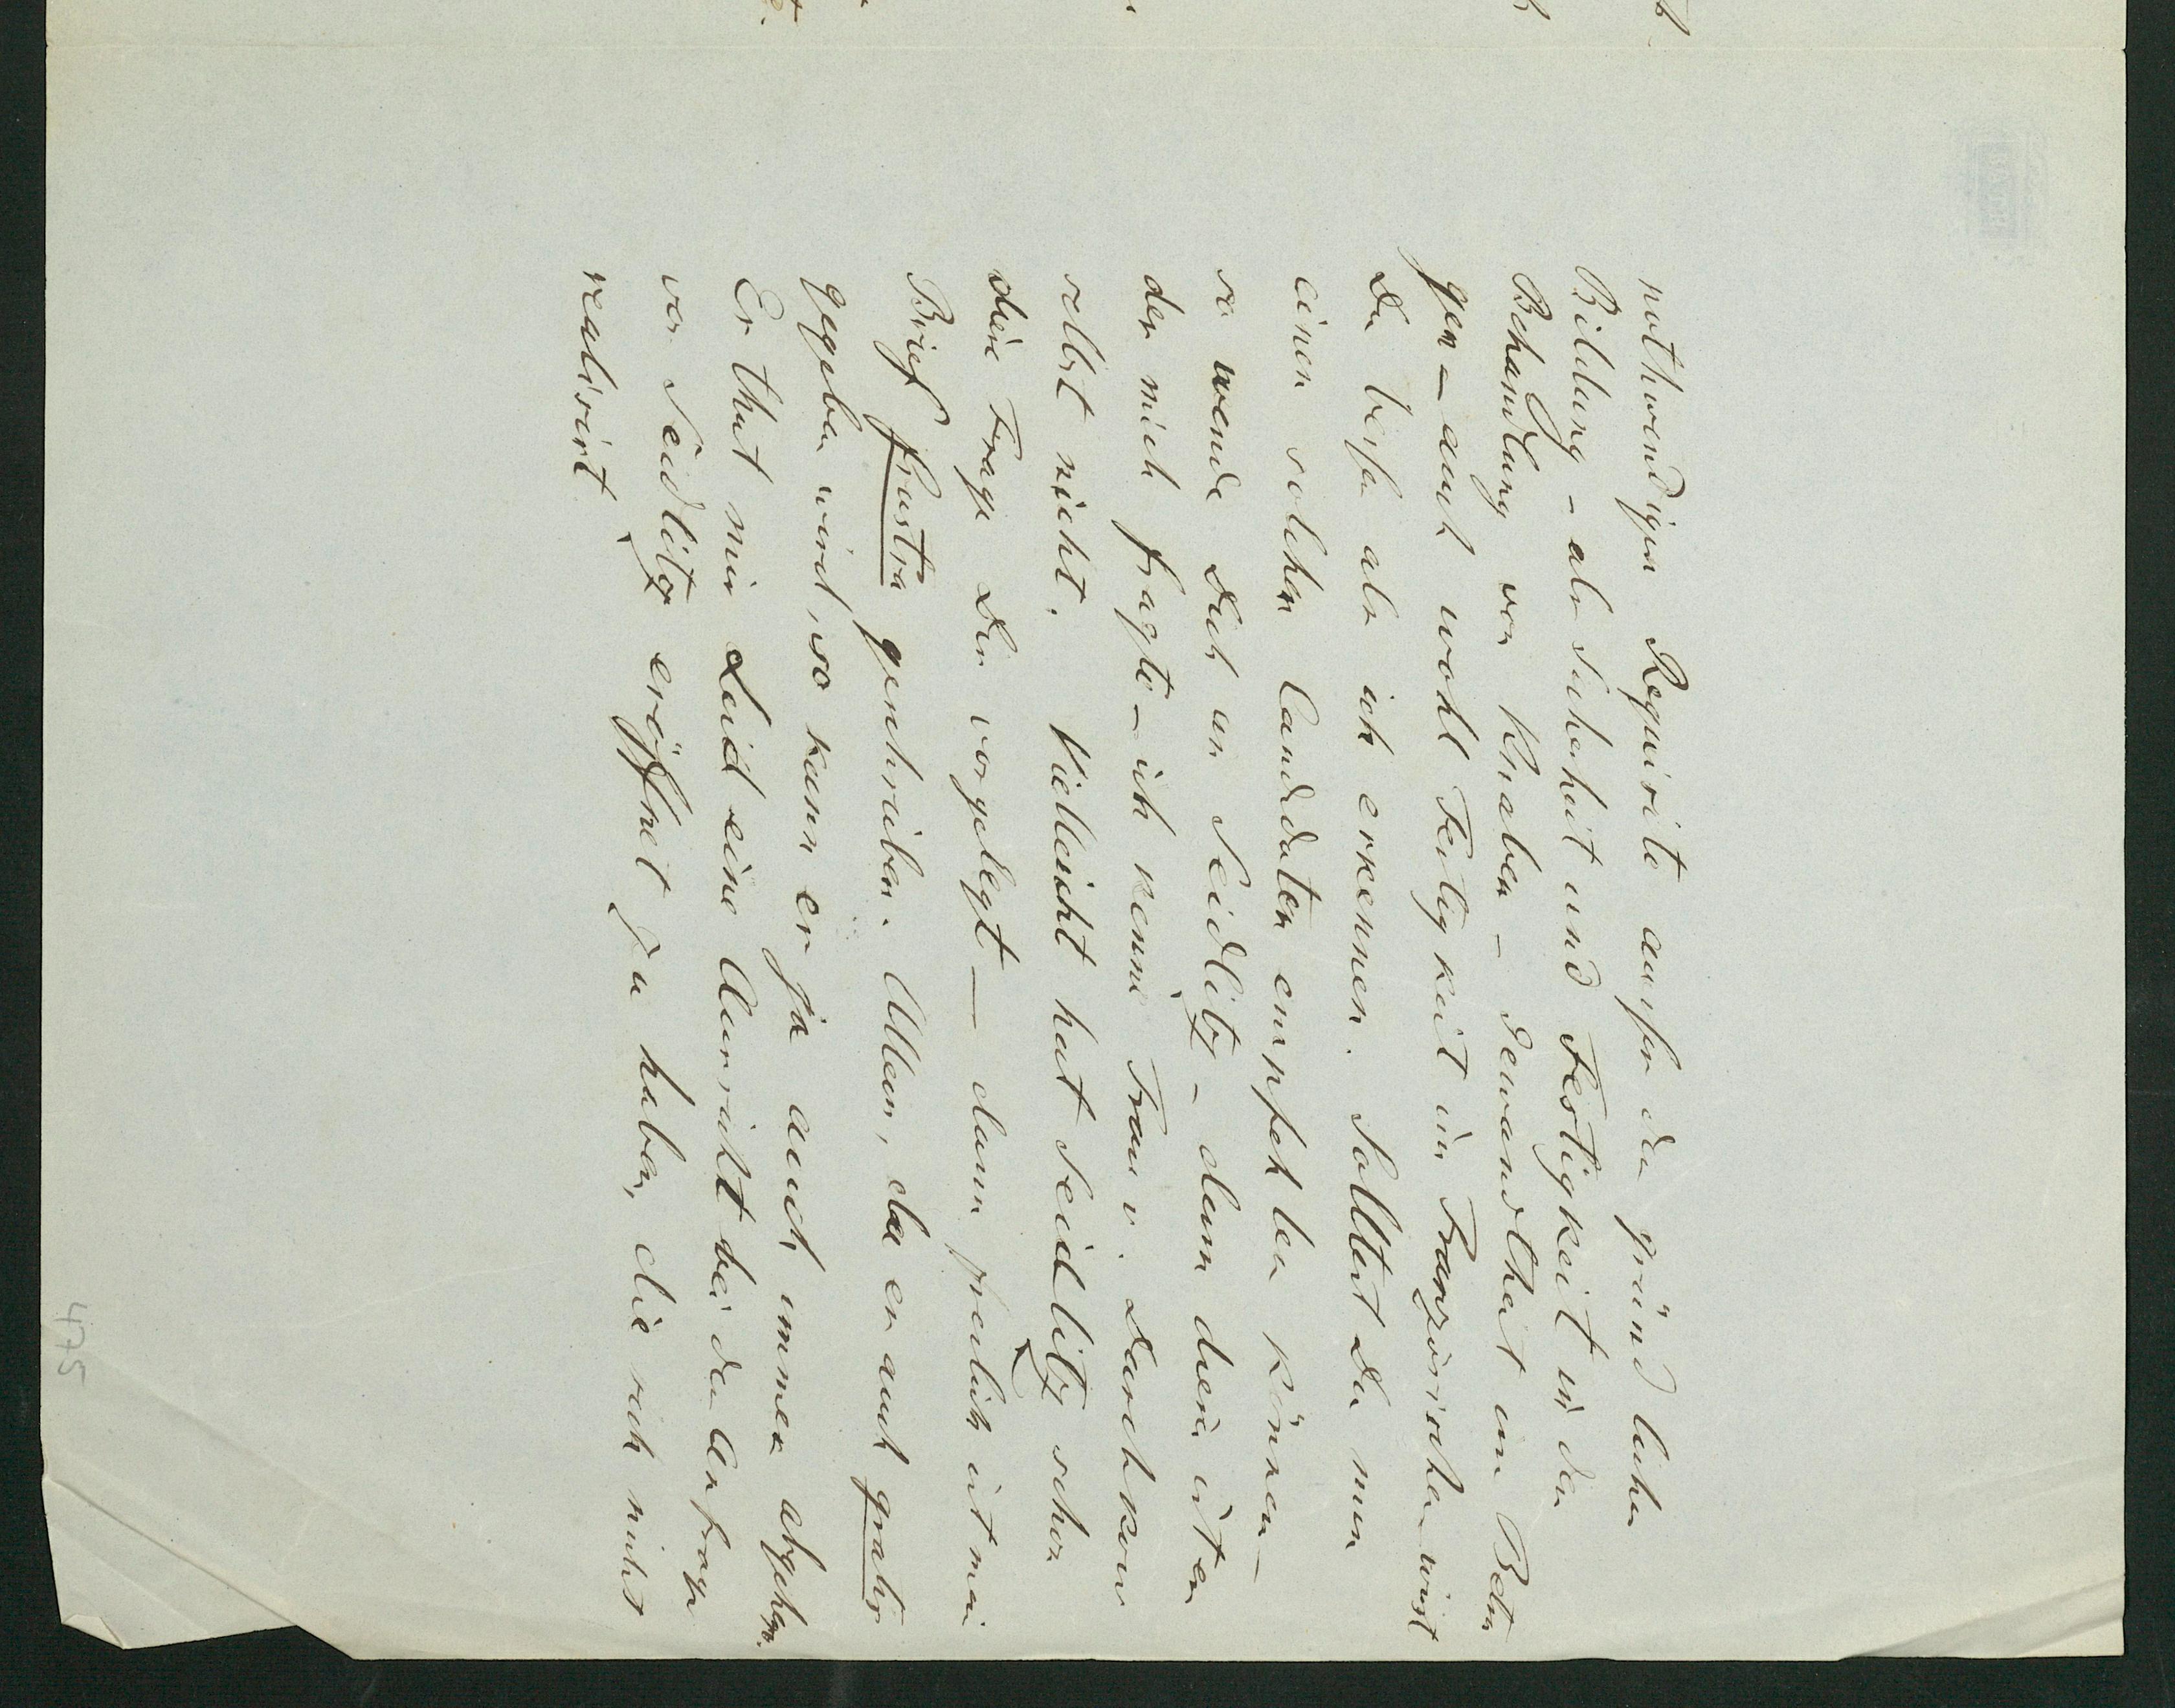 nothwendigen Requisite außer der gründlichen
Bildung – als Sicherheit und Festigkeit in der
Behandlung von Knaben – Gewandtheit im Betra
gen – auch wohl Fertigkeit im Französischen wirst
Du besser als ich erkennen. Solltest Du nun
einen solchen Candidaten empfehlen können –
so wende Dich an Seidlitz – denn dieser ist es
der mich fragte – ich kenne Frau v.
selbst nicht. Vielleicht hat Seidlitz schon
diese Frage Dir vorgelegt — dann freilich ist mein
Brief frustra geschrieben. Allein, da er auch gratis
gegeben wird, so kann er ja auch immer abgehen.
Er thut mir Leid eine Aussicht bei der Anfrage
von Seidlitz eröffnet zu haben, die sich nicht
realisirt
475